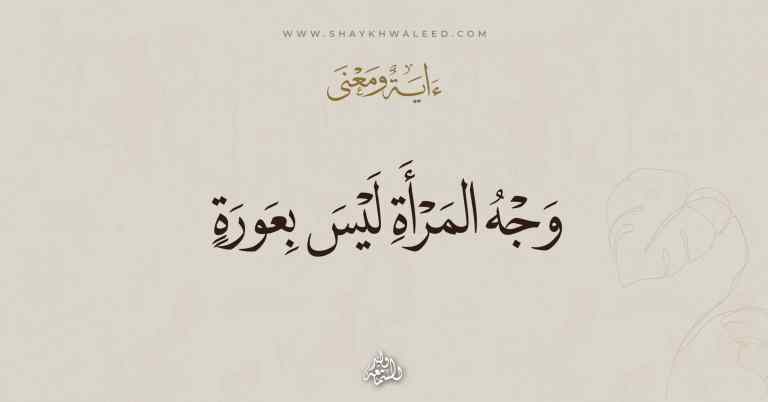 WWW.SHAYKHWALEED.COM
ءَايَةٌ وَمَعْنَى
وَجْهُ المَرْأَةِ لَيْسَ بِعَورَةٍ